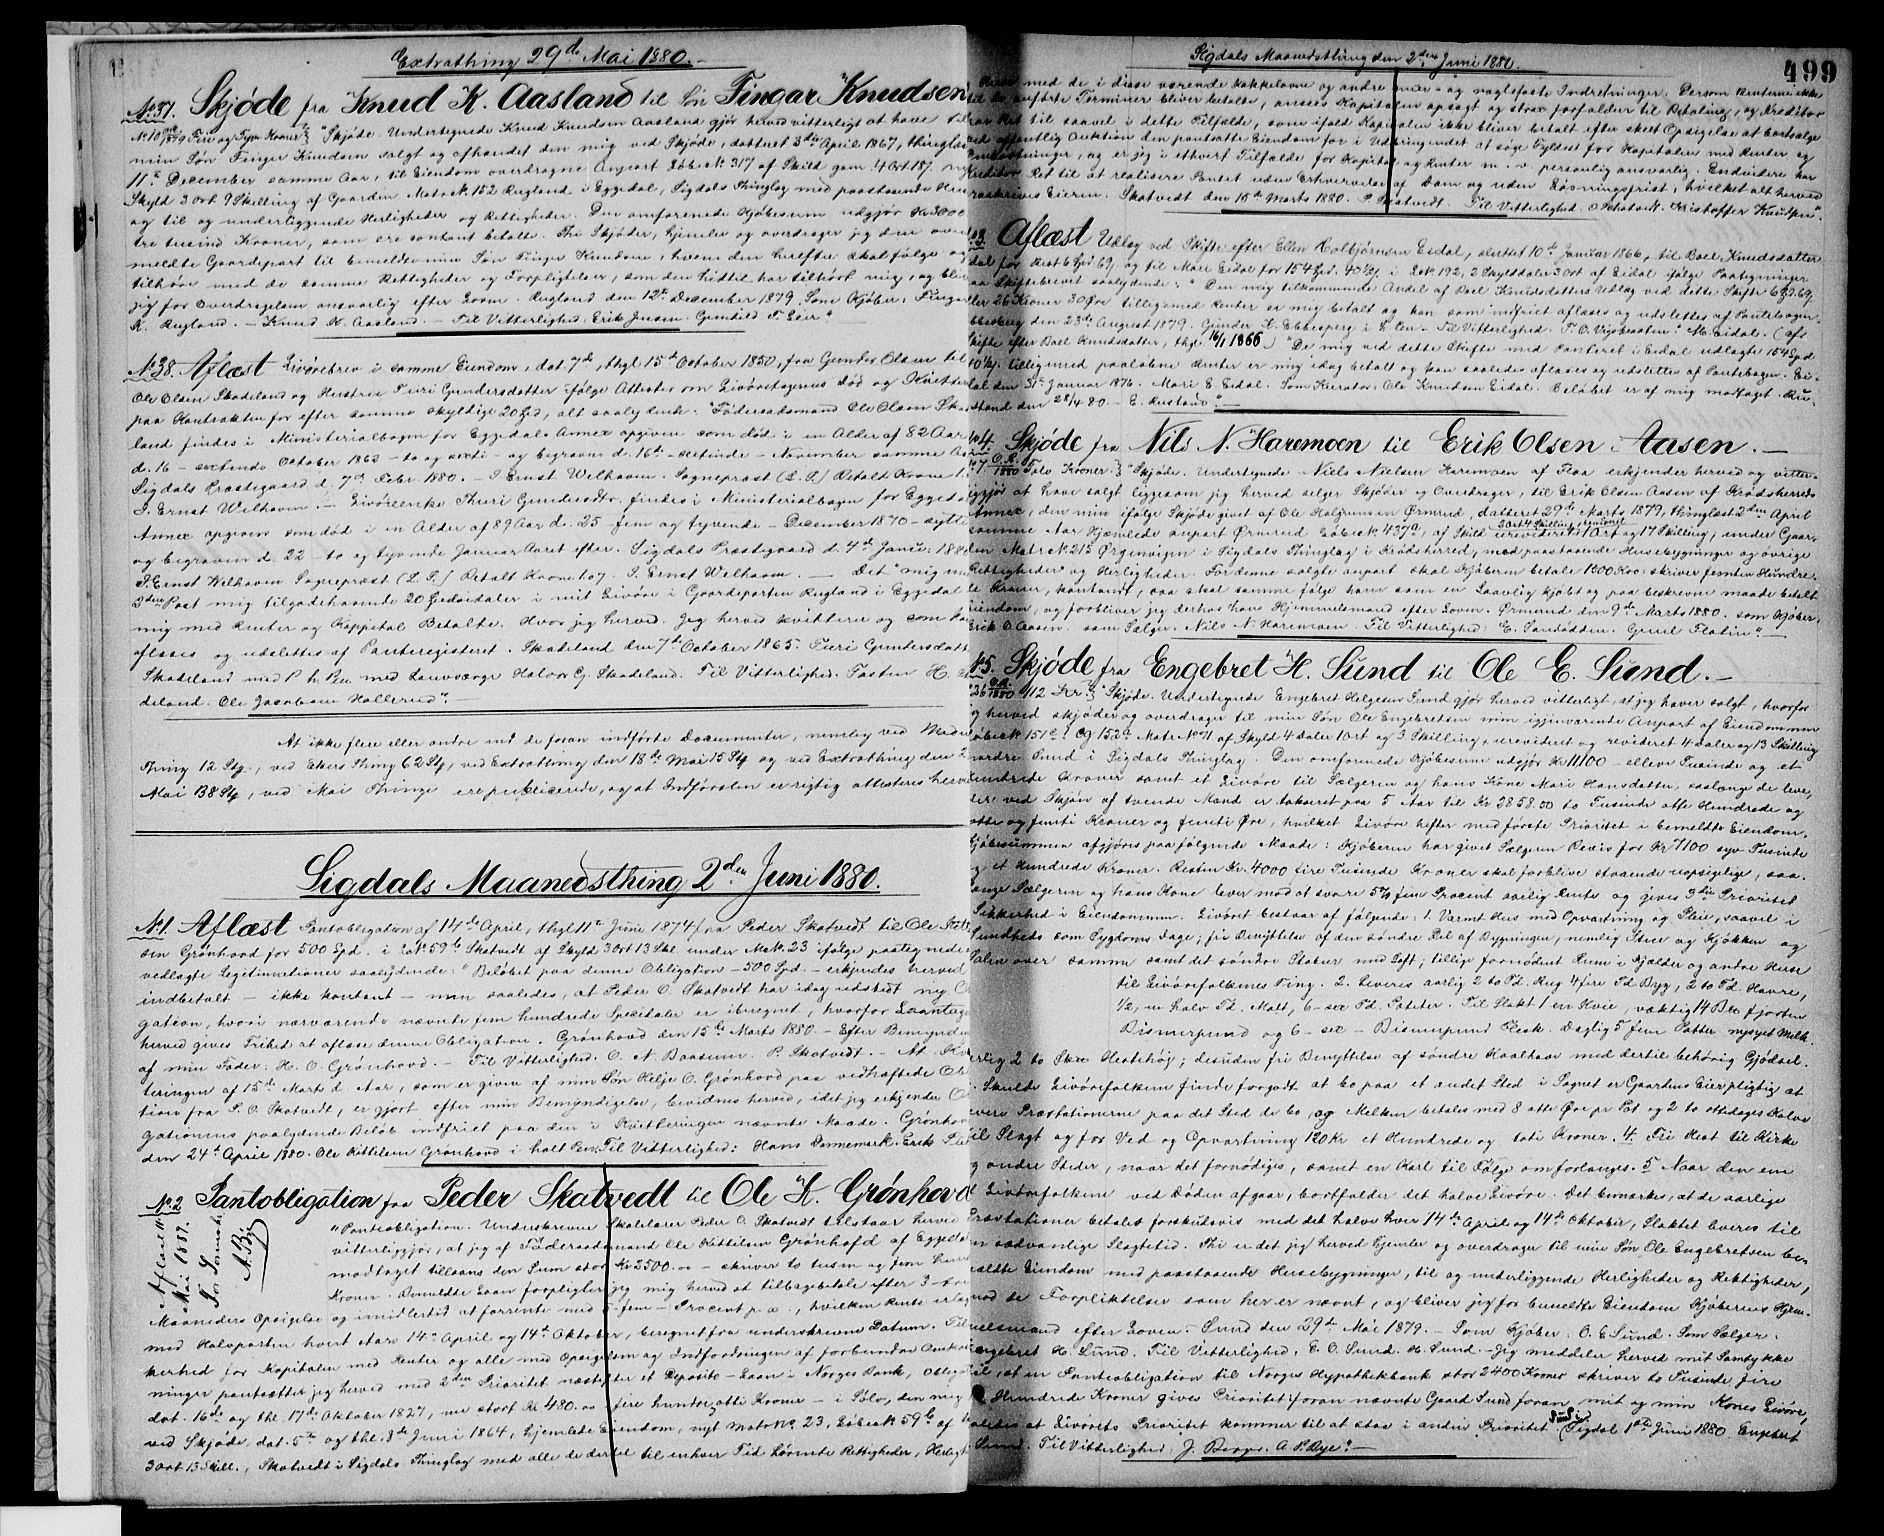 Extrathing 29de Mai 1880.
No 37. Skjøde fra Knud K. Aasland til Søn Fingar Knudsen
Fire og Tyve Kroner "Skjøde. Undertegnede Knud Knudsen Aasland gjør herved vitterligt at have til
min Søn Fingar Knudsen solgt og afhændet den mig ved Skjøde, dateret 3die April 1867, thinglæst
11te December samme Aar, til Eiendom overdragne Anpart Løbe No 317 af Skyld gam. 4 Ort 18 ny
Skyld 3 Ort 9 Skilling af Gaarden Matr. No 152 Rugland i Eggedal, Sigdals Thinglag med paastaaende Huse
og til og underliggende Herligheder og Rettigheder. Den omforenede Kjøbesum udgjør Kr 3000
tre tusind Kroner, som ere contant betalte. Thi Skjøder, hjemler og overdrager jeg den oven
meldte Gaardepart til bemeldte min Søn Fingar Knudsen, hvem den herefter skal følge og
tilhøre med de samme Rettigheder og Forpligtelser, som den hidtil har tilhørt mig, og bliver
jeg for Overdragelsen ansvarlig efter Loven. Rugland den 12te December 1879. Som Kjøber: Fingar
K. Rugland. – Knud K. Aasland. – Til Vitterlighed: Erik Jensen. Gunnild T. Leir"
No 38. Aflæst Livørebrev i samme Eiendom, dat. 7de, thgl 15de October 1850, fra Gunder Olsen til
Ole Olsen Skadeland og Hustrue Turi Gundersdatter ifølge Attest om Livøretsgernes død og Kvittering
paa Kontrakten for efter samme skyldige 20 Spd, alt saalydende: "Føderaadsmand Ole Olsen Skade
land findes i Ministerialbogen for Eggedals Annex opgiven som død i en Alder af 82 Aar
d. 16 – sextende October 1862 – to og sexti – og begraven d. 16de – sextende – November samme Aar
Sigdals Præstegaard d. 7de Febr. 1880. – J. Ernst Welhaven. Sogneprest (L.S.) Betalt Krone 1.
J. Ernst Welhaven. – Livøreenke Thuri Gundersdtr. findes i Ministerialbogen for Eggedals
Annex opgiven som død i en Alder af 89 Aar d. 25 – fem og tyvende – December 1870 – sytti
og begraven d. 22 – to og tyvende Januar Aaret efter. Sigdals Præstegaard d. 4de Januar 1880
J. Ernst Welhaven Sogneprest (L.S.) Betalt Krone 1.07. J. Ernst Welhaven. – Det mig
3die Post mig tilgodehavende 20 Speciedaler i mit Livøre i Gaardeparten Rugland i Eggedal
mig med Renter og Kappital Betalte. Hvor jeg herved. Jeg herved kvitterer og som kan
aflæses og udslettes af Panteregisteret. Skadeland den 7de October 1865. Turi Gundersdatter
Skadeland med P. h. Pen med Laugværge Halvor Cg. Skadeland. Til Vitterlighed. Tosten H. Ska
deland. Ole Jacobsen Hallerud". –
At ikke flere eller andre end de foran indførte Documenter, nemlig ved Modums
Thing 12 Stk, ved Ekers Thing 62 Stk, ved Extrathing den 18de Mai 15 Stk og ved Extrathing den 29
Mai 38 Stk, ved Mai Thinge ere publicerede, og at Indførslen er rigtig attesteres herved
Sigdals Maanedsthing 2den Juni 1880.
No 1. Aflæst Pantobligation af 14de April, thgl 11te Juni 1874 fra Peder Skatvedt til Ole Kittel
sen Grønhovd for 500 Spd. i L.No 59b Skatvedt af Skyld 3 Ort 13 Skl. under M.No. 23 ifølge paategnede
vedlagte Legitimationer saalydende: "Beløbet paa denne Obligation – 500 Spd. – erkjendes herved
indbetalt – ikke kontant – men saaledes, at Peder O. Skatvedt har idag udstedt ny Obli
gation, hvori nærværende nævnte fem hundrede Speciedaler er iberegnet, hvorfor Laantager
herved gives Frihed at aflæse denne Obligation. Grønhovd den 15de Marts 1880. – Efter Bemyndigelse
af min Fader: H. O. Grønhovd. – Til Vitterlighed: O. N. Baasum. P. Skatvedt. – At Kvit
teringen af 15de Marts d. Aar, som er given af min Søn Helje O. Grønhovd paa vedhæftede Obliga
tion fra P. O. Skatvedt, er gjort efter min Bemyndigelse, bevidnes herved, idet jeg erkjender Obli
gationens paalydende Beløb indfriet paa den i Kvitteringen nævnte Maade. Grønhovd
den 24de April 1880. Ole Kittilsen Grønhovd i holt Pen. Til Vitterlighed: Hans Dannemark. Erik
No 2 Pantobligation fra Peder Skatvedt til Ole K. Grønhovd
Aflæst 11te
Mai 1887.
For Sorenskr.
A. Bye
"Pantobligation. Underskrevne Skolelærer Peder O. Skatvedt tilstaar herved
vitterliggjør, at jeg af Føderaadsmand Ole Kittilsen Grønhofd af Eggedal
modtaget tillaans den Sum stor Kr 2500.00 – skriver to tusin og fem hundrede
Kroner. Anmeldte Laan forpligter jeg mig herved at tilbagebetale efter 3 – tre
Maaneders Opsigelse og imidlertid at forrente med 5 – fem – Procent p.a., hvilken Rente erlægges
med Halvparten hvert Aars 14de April og 14de Oktober, beregnet fra underskrevne Datum. Til
kerhed for Kapitalen med Renter og alle med Opsigelsen og Indfordringen af forbundne Omkost
ninger pantsætter jeg herved med 2den Prioritet næstefter et Deposito-Laan i Norges Bank, Obligation
dat. 16de og thl. 17de Oktober 1827, nu stort Kr 480.00 – fire hundre otti Kroner – i Sølv, den mig
ved Skjøde, dat. 5te og thl. 8de Juni 1864, hjemlede Eiendom, nyt Matr. No. 23, Løbe No 59b af
3 Ort 13 Skill., Skatvedt i Sigdals Thinglag med alle de dertil til enhver Tid hørende Rettigheder, Herlig
Sigdals Maanedsthing den 2den Juni 1880.
499
med de i disse værende Kakkelovne og andre mur- og naglefaste Indretninger. Dersom Renterne ikke
til de anførte Terminer bliver betalte, ansees Kapitalen opsagt og strax forfalden til Betaling, og Kreditor
har Ret til saavel i dette Tilfælde, som ifald Kapitalen ikke bliver betalt efter skeet Opsigelse at bortsælge
ved offentlig Auktion den pantsatte Eiendom for i Udbringendet at søge Fyldest for Kapitalen med Renter og
Omkostninger, og er jeg i ethvert Tilfælde for Kapital og Renter m. v. personlig ansvarlig. Endvidere har
Kreditor Ret til at realisere Pantet uden Erhvervelse af Dom og uden Løsningsfrist, hvilket alt herved
Eieren. Skatvedt den 15de Marts 1880. P. Skatvedt. Til Vitterlighed: O Schatvet. Kristoffer Knudsen".
No 3. Aflæst Udlæg ved Skifte efter Ellen Kolbjørnsen Eidal, sluttet 10de Januar 1866, til Boel Knudsdatter
dal for Rest 6 Spd 69 og til Mari Eidal for 154 Spd. 40½ i L.No 192, 2 Skylddaler 3 Ort af Eidal ifølge Paategninger
paa Skiftebrevet saalydende: "Den mig tilkommende Andel af Boel Knudsdatters Udlæg ved dette Skifte 6 Spd. 69
ler 26 Kroner 30 Øre tilligemed Renter er mig betalt og kan som indfriet aflæses og udslettes af Pantebogen.
Ebbesberg den 23de August 1879. Gunder K. Ebbesberg i h. Pen. Til Vitterlighed: T. O. Vigesaaten. M. Eidal. (afs
Skifte efter Boel Knudsdatter, thgl. 16/1 1866.) "De mig ved dette Skifte med Panteret i Eidal udlagte 154 Spd
40½ tilligemed paaløbne Renter er mig idag betalt og kan saaledes aflæses og udslettes af Pantebogen. Ei-
dal den 31te Januar 1876. Mari E. Eidal. Som Kurator: Ole Knudsen Eidal. Beløbet er af mig modtaget Ru-
stand den 28/4 80 – E. Rustand". –
No 4. Skjøde fra Nils N. Haremoen til Erik Olsen Aasen. –
Tolv Kroner. "Skjøde. Undertegnede Niels Nielsen Haremoen af Flaa erkjender herved og vitter-
liggjør at have solgt ligesom jeg herved selger Skjøder og Overdrager, til Erik Olsen Aasen af Krødsherreds
Annex, den min ifølge Skjøde givet af Ole Halgrunsen Ørmrud, datteret 29de Marts 1879, thinglæst 2den April
samme Aar Hjemlede anpart Ørmrud Løbe No 437a, af Skild urevideret 1 Ort og 17 Skilling, under Gaar-
2 ort 4 Skilling, revideret
den Matr. No 215 Ørgenvigen i Sigdals Thinglag i Krødsherred, med paastaaende Husebygninger og øvrige
Rettigheder og Herligheder. For denne solgte anpart skal Kjøberen betale 1500 Kro: skriver femten Hundre
de Kroner, kontant, saa skal samme følge ham som en Laavlig kjøbt og paa beskrevne maade Betalt
Eiendom, og forbliver jeg derhos hans Hjemmelsmand efter Loven. Ørmrud den 9de Marts 1880. som Kjøber:
Erik O. Aasen. som Sælger: Nils N. Haremoen. Til Vitterlighed: E. Sandodden. Gunil Flatin". –
No 5. Skjøde fra Engebret H. Sund til Ole E. Sund. –
112 Kr. "Skjøde. Undertegnede Engebret Helgesen Sund gjør herved vitterligt, at jeg haver solgt, hvorfor
jeg herved skjøder og overdrager til min Søn Ole Engebretsen min igjenværende Anpart af Eiendommen
Løbe No 151c og 152a Matr No 71 af Skyld 4 daler 1 Ort og 3 Skilling, urevideret og revideret 4 daler og 13 Skilling
nordre Sund i Sigdals Thinglag. Den omforenede Kjøbesum udgjør Kr 11100 – elleve Tusinde og et
Hundrede Kroner samt et Livøre til Sælgeren og hans Kone Mari Hansdatter, saalænge de leve,
der ved Skjøn af tvende Mænd er takseret paa 5 Aar til Kr 2858.50 to Tusinde otte Hundrede og
otte og femti Kroner og femti Øre, hvilket Livøre hefter med første Prioritet i bemeldte Eiendom.
Kjøbesummen afgjøres paa følgende Maade: Kjøberen har givet Sælgeren Bevis for Kr 7100 syv Tusinde
og et Hundrede Kroner. Resten Kr. 4000 fire Tusinde Kroner skal forblive staaende uopsigelige, saa-
længe Sælgeren og hans Kone lever mod at svare 5% fem Procent aarlig Rente og gives 3die Prioritet
Sikkerhed i Eiendommen. Livøret bestaar af følgende: 1. Varmt Hus med Opvartning og Pleie, saavel i
Sundheds som Sygdoms Dage; fri Benyttelse af den søndre Del af Bygningen, nemlig Stue og Kjøkken og
Salen over samme samt det søndre Stabur med Loft; tillige fornødent Rum i Kjælder og andre Huse
til Livørefolkenes Ting. 2. Leveres aarlig 2 to Td. Rug 4 fire Td Byg, 2 to Td. Havre,
½, en halv Td. Malt, 6 – sex Td. Poteter. Til Slakt 1 en Kvie, vægtig 14 Bm fjorten
Bismerpund og 6 – sex – Bismerpund Flesk. Daglig 5 fem Potter nysyet Melk.
aarlig 2 to Skrc Hestehøj; desuden fri Benyttelse af søndre Kaalhave med dertil behørig Gjødsel.
3. Skulde Livørefolkene finde forgodt at bo paa et andet Sted i Sognet er Gaardens Eier pligtig at
levere Præstationerne paa det Sted de bo, og Melken betales med 8 otte Øre pr Pot og 2 to ottedages Kalve
til Slagt og for Ved og Opvartning 120 Kr et Hundrede og toti Kroner. 4. Fri Hest til Kirke
og andre Steder, naar det fornødiges, samt en Karl til Følge om forlanges. 5 Naar den ene
af Livørefolkene ved Døden afgaar, bortfalder det halve Livøre. Det bemærkes, at de aarlige
Præstationer betales forskudsvis med det halve hver 14de April og 14de Oktober, Slaktet leveres til
den sædvanlige Slagtetid. Thi er det jeg herved hjemler og overdrager til min Søn Ole Engebretsen be-
meldte Eiendom med paastaaende Husebygninger, til og underliggende Herligheder og Rettigheder,
mod de Forpliktelser som her er nævnt, og bliver jeg for bemeldte Eiendom Kjøberens Hjem-
melsmand efter Loven. – Sund den 29de Mai 1879. – Som Kjøber: O. E Sund. Som Sælger:
Engebret H. Sund. Til Vitterlighed: E. O. Sund. H. Sund. – Jeg meddeler herved mit Samtykke
til, at en Pantobligation til Norges Hypothekbank stor 2400 Kroner skriver to Tusinde fire
Hundrede Kroner gives Prioritet i foran nævnte Gaard Sund foran mit og min Kones Livøre,
saaledes at Livørets Prioritet kommer til at staa i anden Prioritet. Sund i Sigdal 1ste Juni 1880. Engebret
Sund. Til Vitterlighed: J. Bugge. A. P. Bye". –